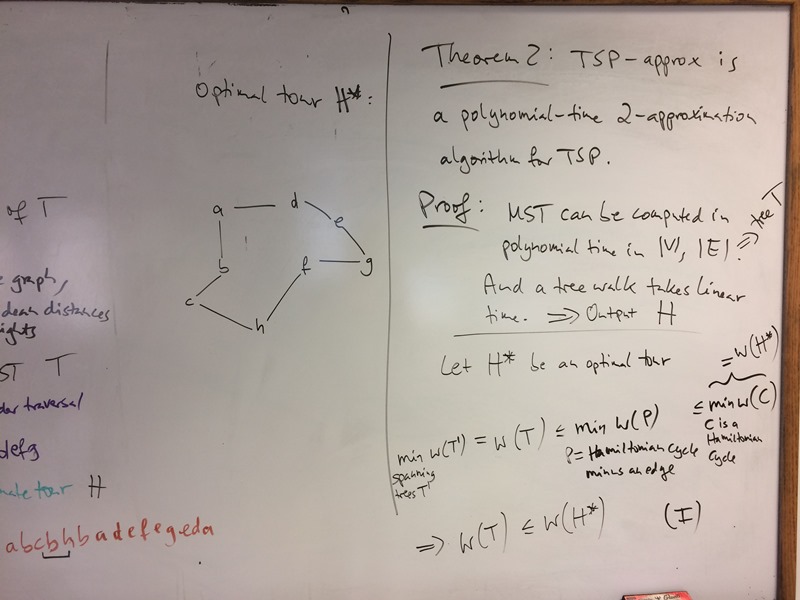 of T
graph,
distances
T
traversal
defg
tour H
abcbhbadefegeda
Optimal tour H*:
a
d
e
b
f
g
c
h
Theorem 2: TSP-approx is
a polynomial-time 2-approximation
algorithm for TSP.
Proof: MST can be computed in
polynomial time in |V|, |E|. ⇒ tree T
And a tree walk takes linear
time. ⇒ Output H
Let H* be an optimal tour
= W(H*)
min W(T') = W(T) ≤ min W(P) ≤ min W(C)
spanning
trees T'
P = Hamiltonian Cycle
minus an edge
C is a
Hamiltonian
Cycle
⇒ W(T) ≤ W(H*) (I)